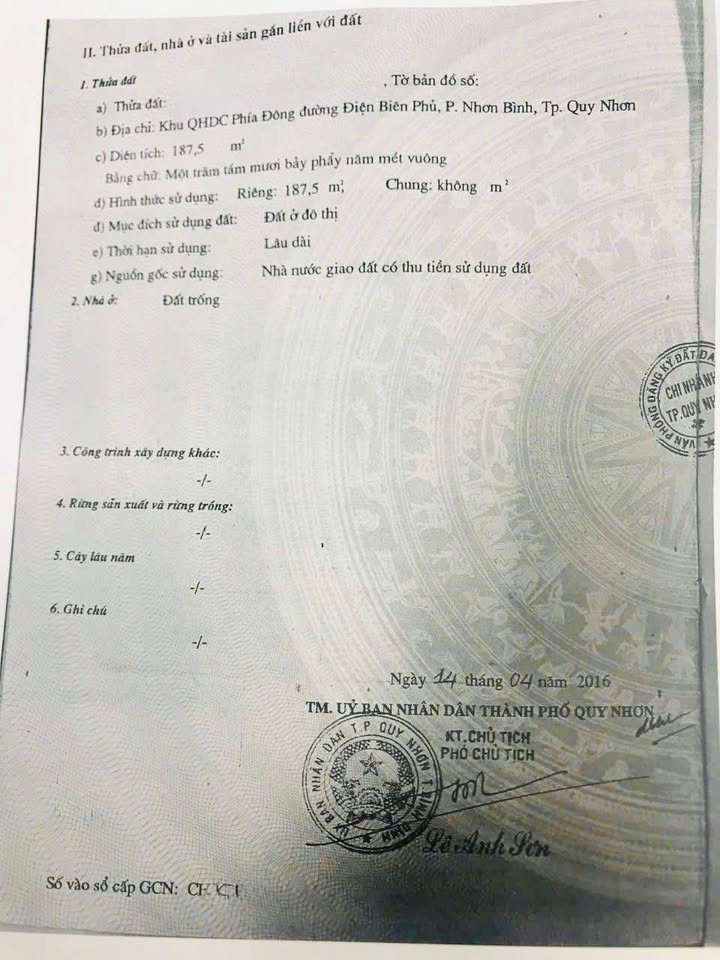 II. Thửa đất, nhà ở và tài sản gắn liền với đất
1. Thửa đất
a) Thửa đất: , Tờ bản đồ số:
b) Địa chỉ: Khu QHDC Phía Đông đường Điện Biên Phủ, P. Nhơn Bình, Tp. Quy Nhơn
c) Diện tích: 187,5 m²
Bằng chữ: Một trăm tám mươi bảy phẩy năm mét vuông
d) Hình thức sử dụng: Riêng: 187,5 m², Chung: không m²
đ) Mục đích sử dụng đất: Đất ở đô thị
e) Thời hạn sử dụng: Lâu dài
g) Nguồn gốc sử dụng: Nhà nước giao đất có thu tiền sử dụng đất
2. Nhà ở: Đất trống
VĂN PHÒNG ĐĂNG KÝ ĐẤT ĐA
CHI NHÁNH
TP.QUY NH
3. Công trình xây dựng khác:
-/-
4. Rừng sản xuất và rừng trồng:
-/-
5. Cây lâu năm
-/-
6. Ghi chú
-/-
Ngày 14 tháng 04 năm 2016
TM. UỶ BAN NHÂN DÂN THÀNH PHỐ QUY NHƠN
KT.CHỦ TỊCH
PHÓ CHỦ TỊCH
UỶ BAN NHÂN DÂN T.P QUY NHƠN T.BÌNH ĐỊNH
Lê Anh Sơn
Số vào sổ cấp GCN: